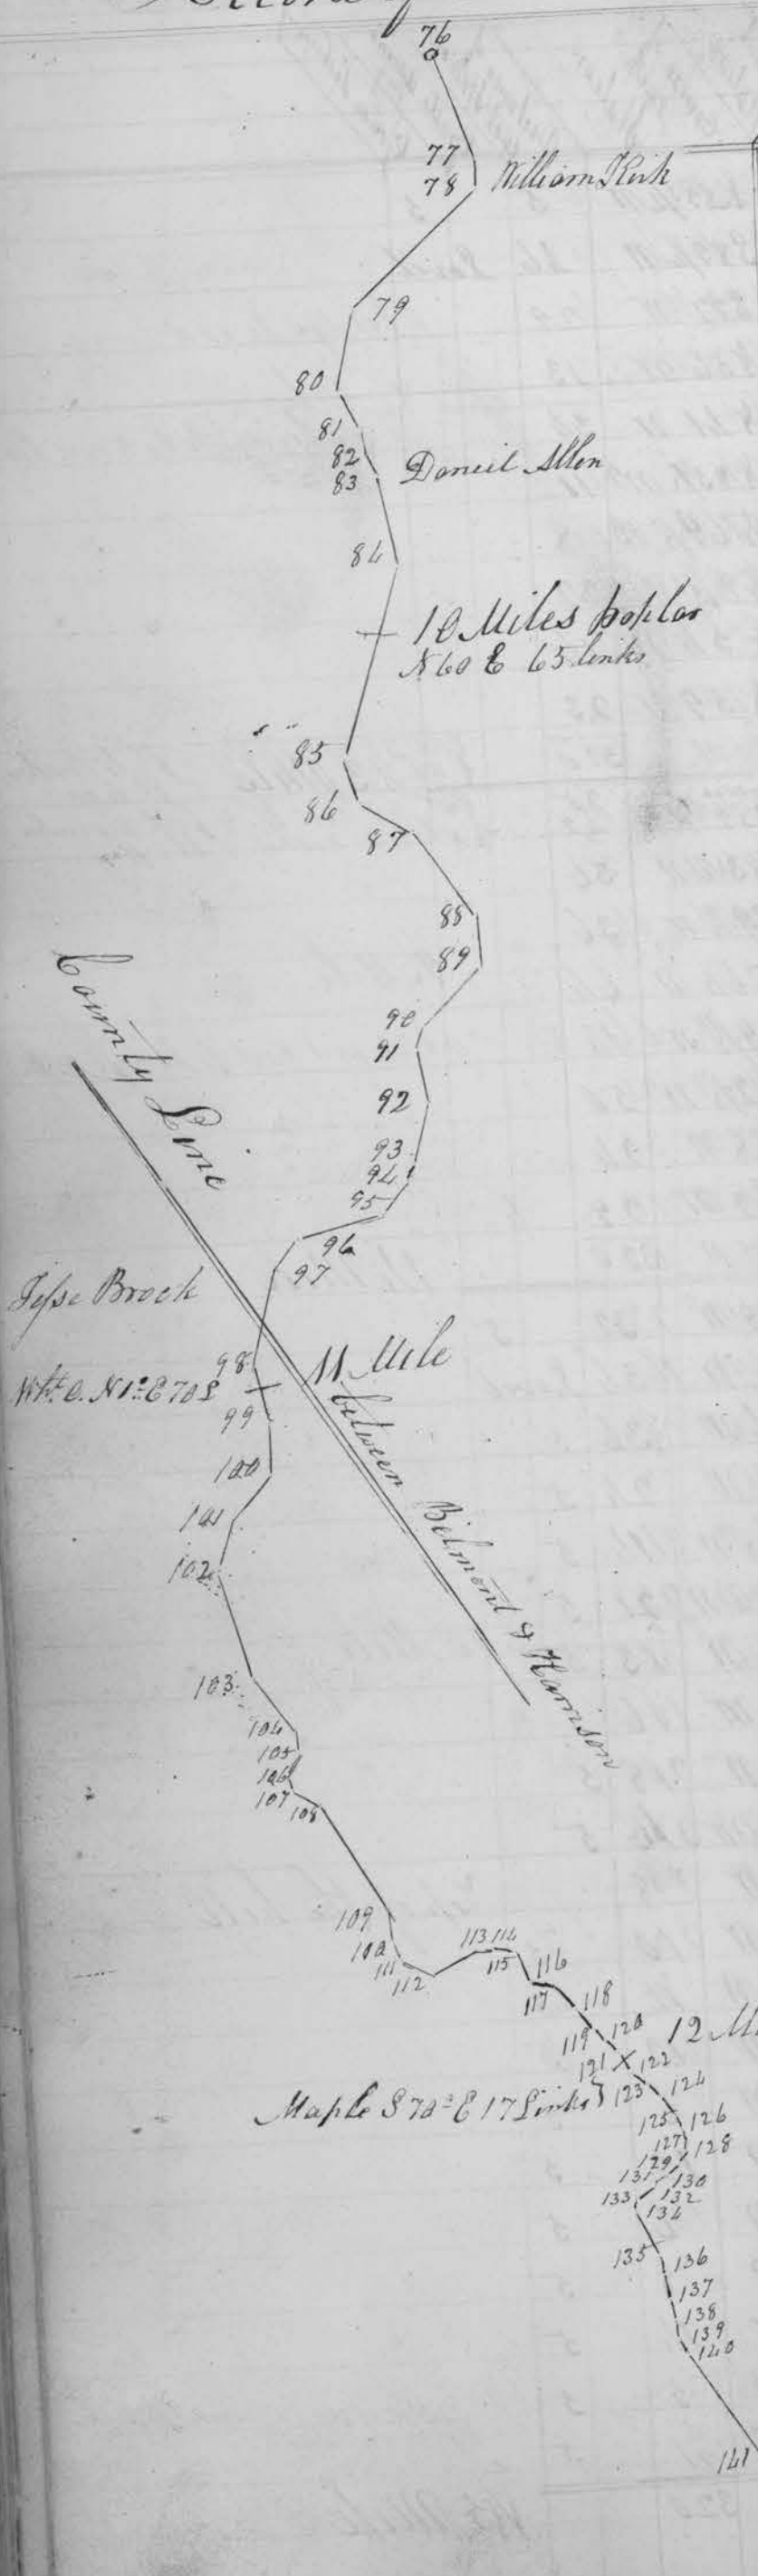 76
77
78 William Kirk
79
80
81
82
83 Daniel Allen
84
10 Miles poplar
N 60 E 65 links
85
86
87
88
89
90
91
92
93
94
95
96
97
County Line
Jesse Brock
98
11 Mile
Wht. O. N 1° E 70 L
99
between Belmont & Harrison
100
101
102
103
104
105
106
107
108
109
110
111
112
113 114
115
116
117
118
119
120
12 M
121
122
123
124
Maple S 70° E 17 Links
125
126
127
128
129
130
131
132
133
134
135
136
137
138
139
140
141